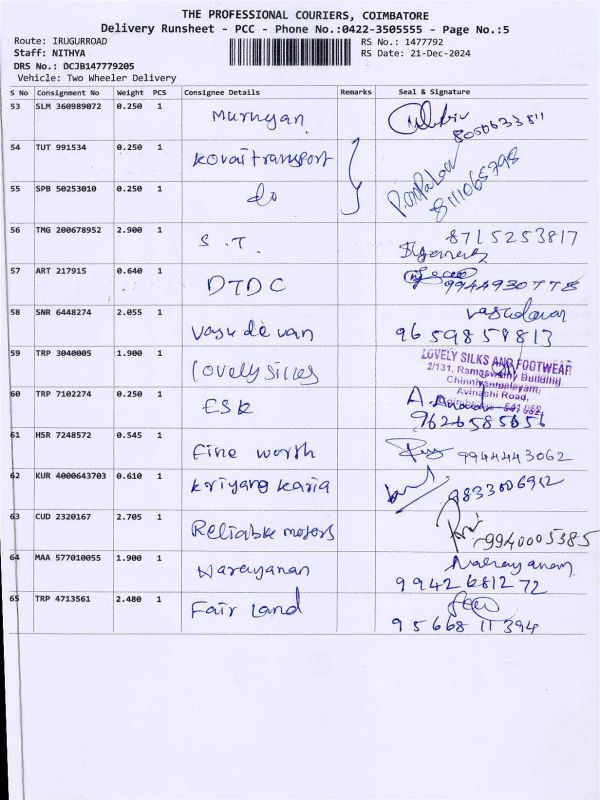 THE PROFESSIONAL COURIERS, COIMBATORE
Delivery Runsheet - PCC - Phone No.:0422-3505555 - Page No.:5
Route: IRUGURROAD
RS No.: 1477792
Staff: NITHYA
RS Date: 21-Dec-2024
DRS No.: DCJB147779205
Vehicle: Two Wheeler Delivery
S No Consignment No Weight PCS Consignee Details Remarks Seal & Signature
53 SLM 360989072 0.250 1 Murugan
8050633811
54 TUT 991534 0.250 1 Kovai transport
8111065798
55 SPB 50253010 0.250 1 do
56 TMG 200678952 2.900 1 S.T. 8715253817
57 ART 217915 0.640 1 DTDC 9944930778
58 SNR 6448274 2.055 1 Vasudevan Vasudevan
9659859813
59 TRP 3040005 1.900 1 Lovely silks
LOVELY SILKS AND FOOTWEAR
2/131, Ramaswamy Building
Chinniyampalayam,
Avinashi Road,
60 TRP 7102274 0.250 1 ESK
9626585656
61 HSR 7248572 0.545 1 Fine worth 9944443062
62 KUR 4000643703 0.610 1 Kriyang Karia 9833006912
63 CUD 2320167 2.705 1 Reliable motors 9940005385
64 MAA 577010055 1.900 1 Narayanan Narayanan
9942681272
65 TRP 4713561 2.480 1 Fair Land
9566811394